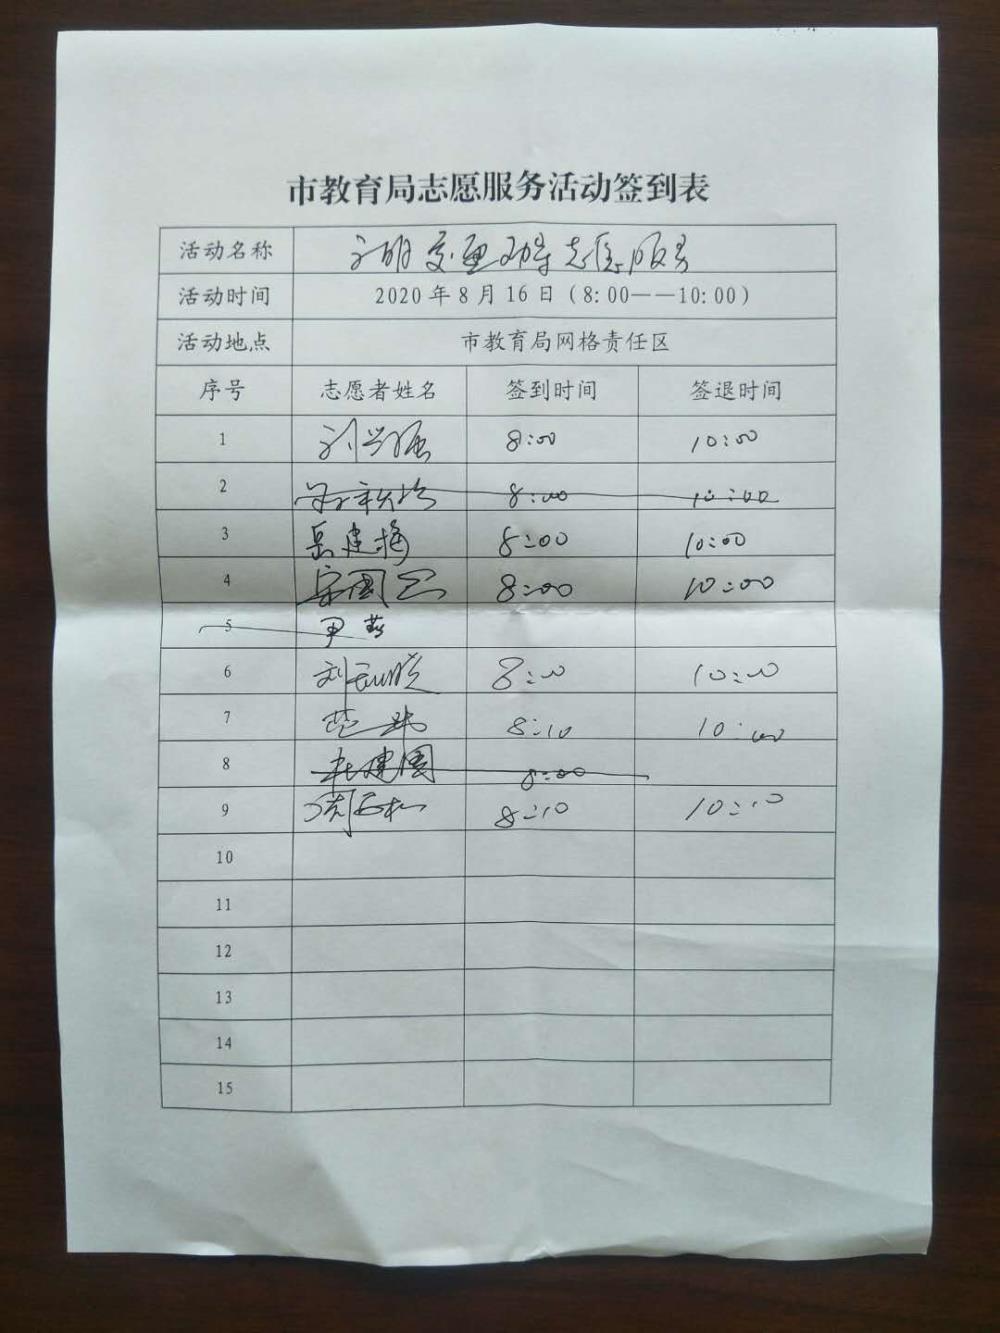 市教育局志愿服务活动签到表
活动名称 文明交通劝导志愿服务
活动时间 2020年8月16日（8:00——10:00）
活动地点 市教育局网格责任区
序号 志愿者姓名 签到时间 签退时间
1 刘兴强 8:00 10:00
2 8:00 10:00
3 岳建梅 8:00 10:00
4 8:00 10:00
5 尹燕
6 8:10 10:10
7 范斌 8:10 10:00
8 杜建国 8:00
9 8:10 10:10
10
11
12
13
14
15